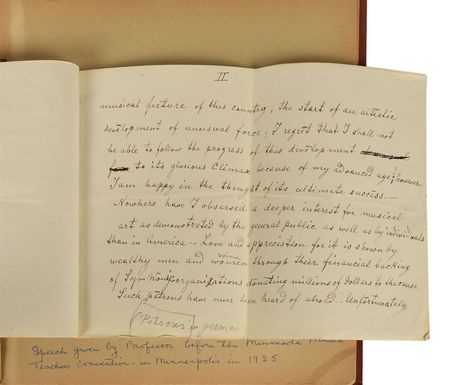 II
musical picture of this country, the start of an artistic
development of unusual force; I regret that I shall not
be able to follow the progress of this development
to its glorious Climax because of my advanced age; however
I am happy in the thought of its ultimate success. —
Nowhere have I observed a deeper interest for musical
art as demonstrated by the general public as well as by individuals
than in America — Love and appreciation for it is shown by
wealthy men and women through their financial backing
of Symphony organizations donating millions of dollars to the cause.
Such patrons have never been heard of abroad. Unfortunately
Patrons in german
Speech given by Professor before the Minnesota Music
Teachers Convention - in Minneapolis in 1925